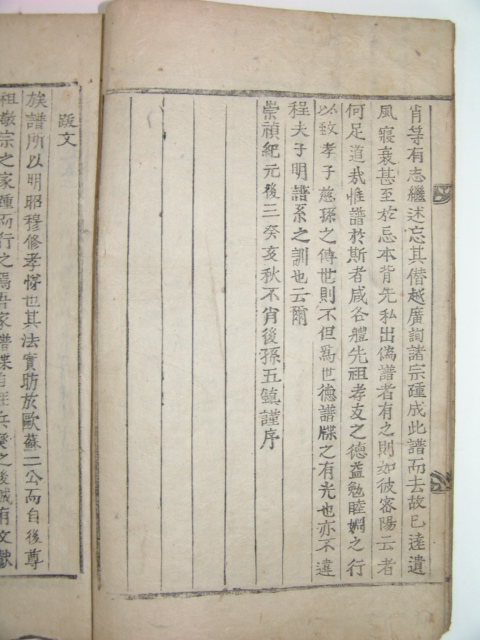 肖等有志繼述忘其僭越廣詢諸宗踵成此譜而去故已遠遺
風寢衰甚至於忌本背先私出偽譜者有之則如彼密陽云者
何足道哉惟譜於斯者咸各軆先祖孝友之德益勉睦婣之行
以致孝子慈孫之傳世則不但爲世德譜牒之有光也亦不違
程夫子明譜系之訓也云爾
崇禎紀元後三癸亥秋不肖後孫五鎮謹序
跋文
族譜所以明昭穆修孝悌也其法實昉於歐蘇二公而自後尊
祖敬宗之家踵而行之焉吾家譜牒自經兵燹之後誠有文獻